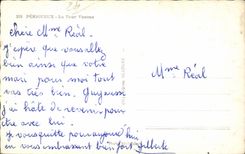 PÉRIGUEUX - La Tour Vésone
Chère Mme Réal
J'espère que vous allez
bien ainsi que votre
mari pour moi tout
vas très bien.
j'ai hâte de revenir pour
être avec lui.
Je vous quitte pour aujourd'hui
en vous embrassant bien fort
Mme Réal